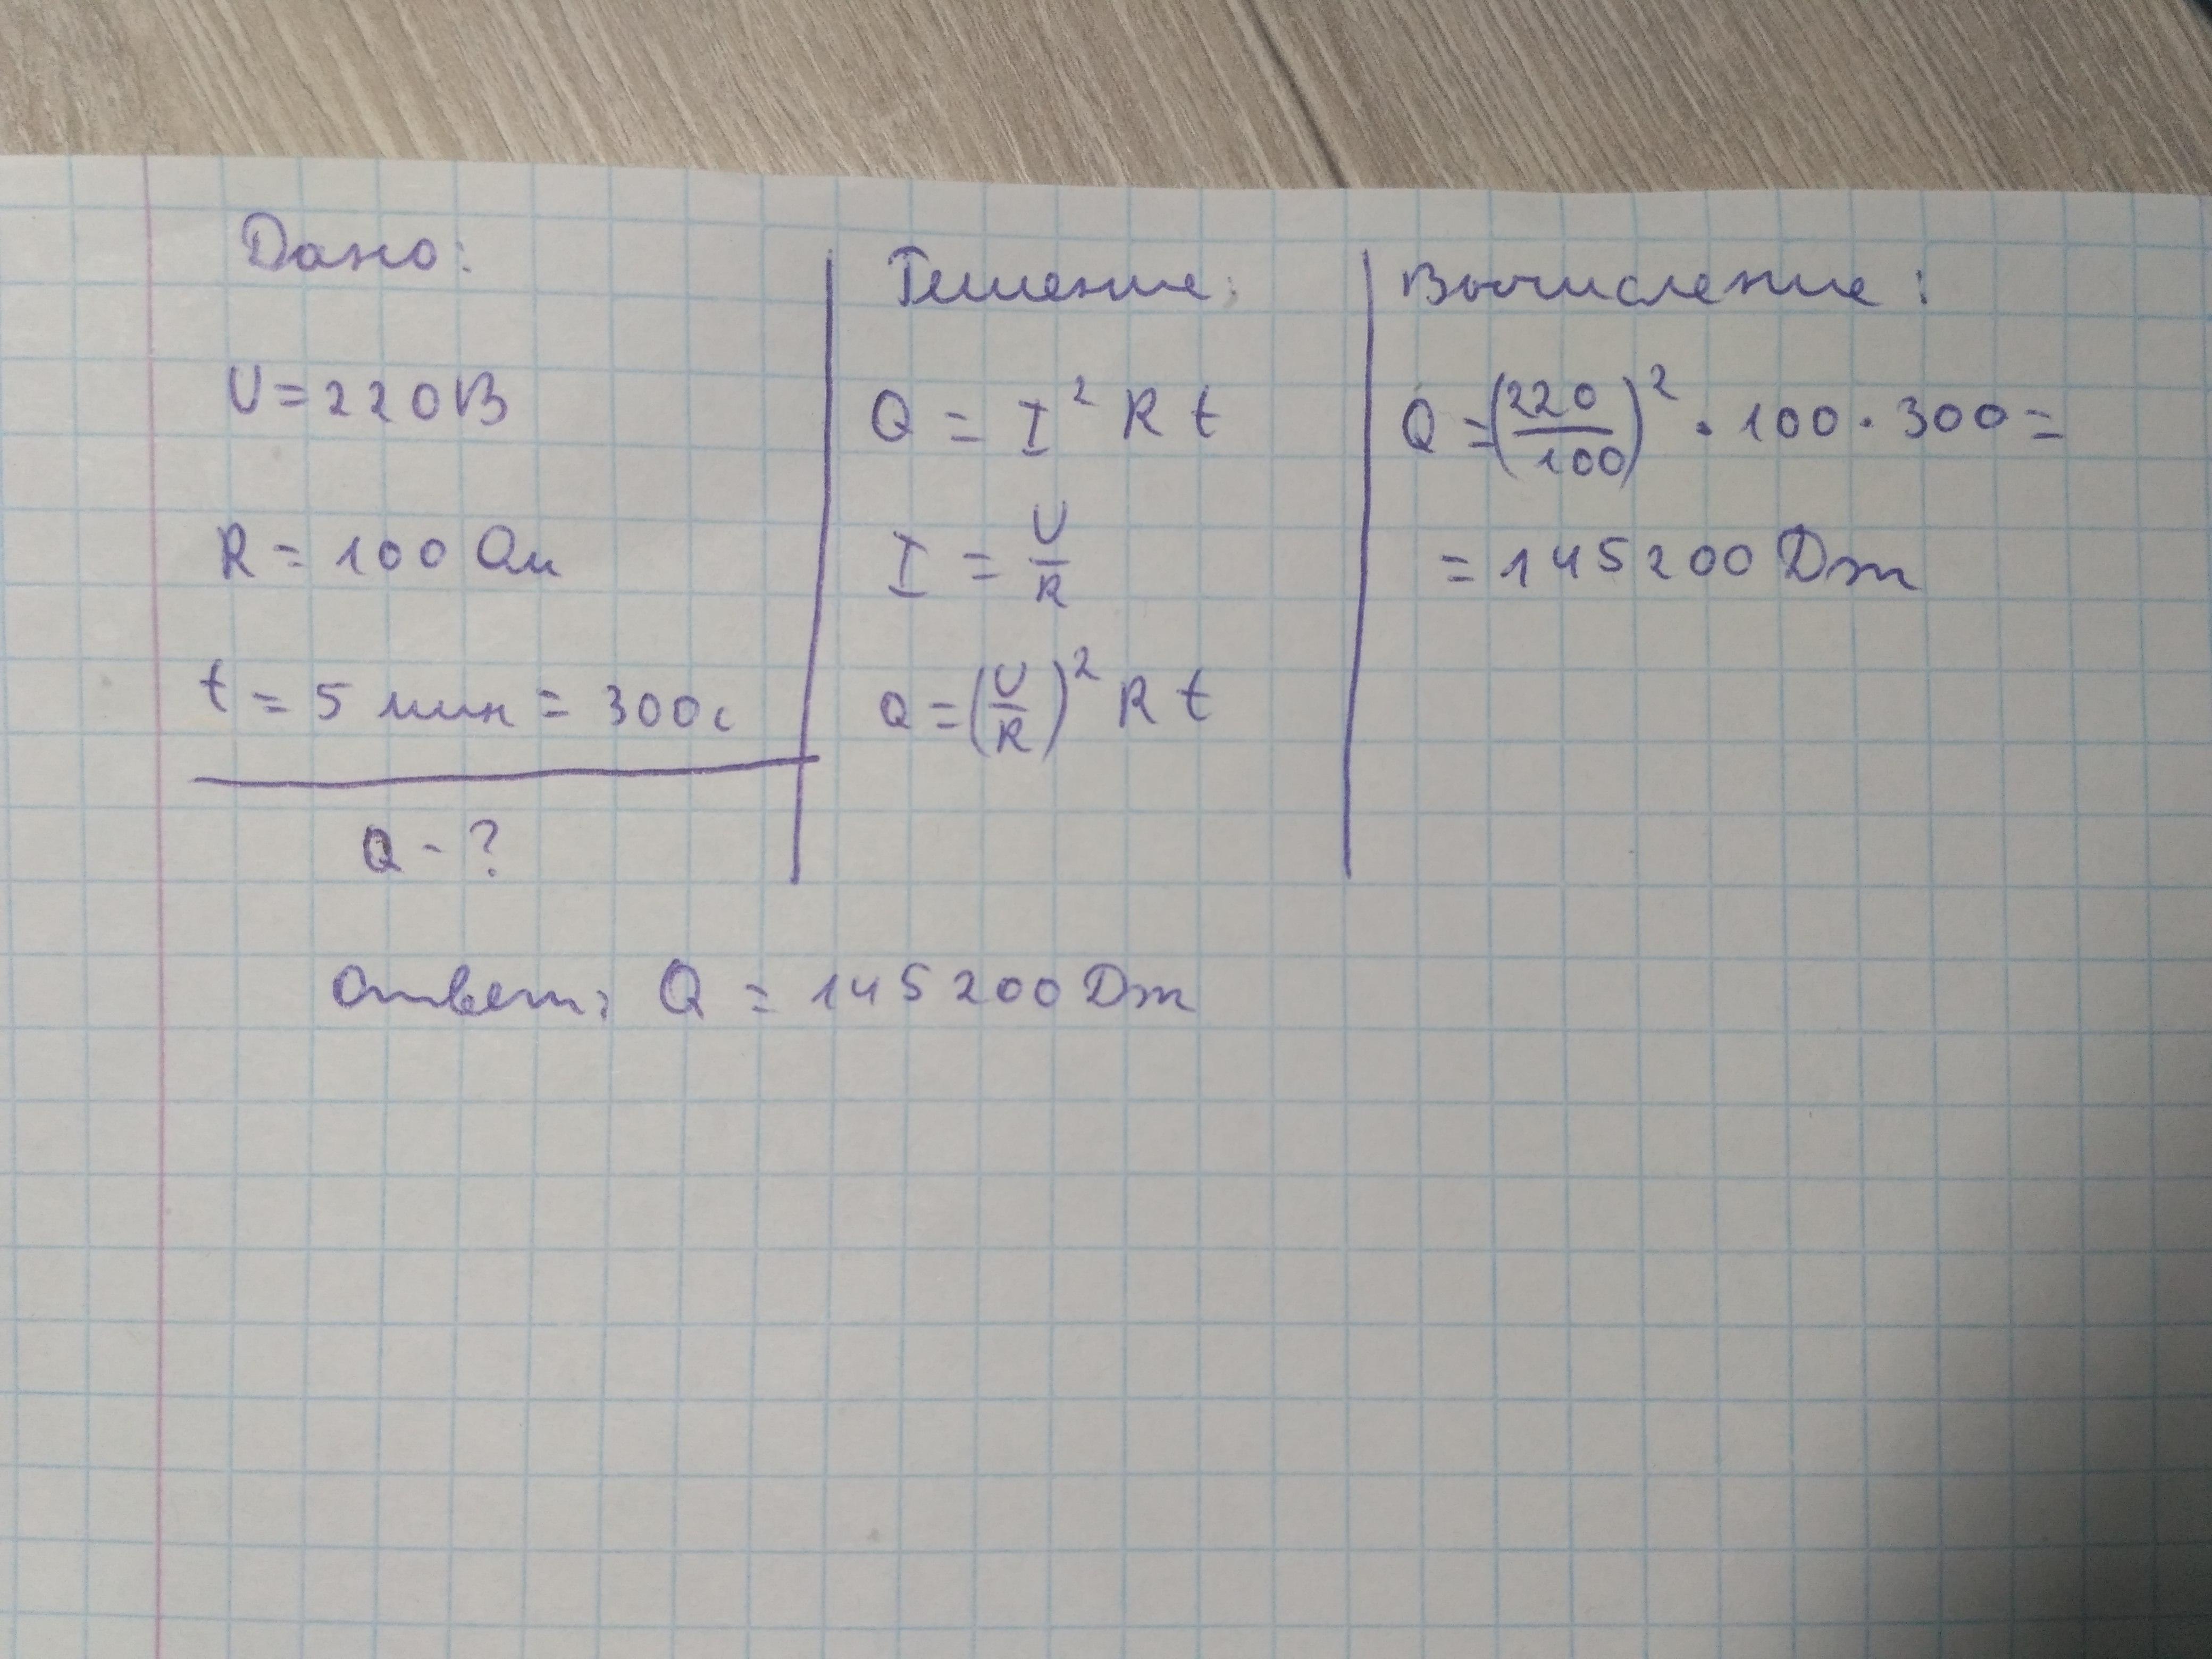 Дано:
U = 220 В
R = 100 Ом
t = 5 мин = 300 с
Q - ?
Решение:
Q = I² R t
I = U/R
Q = (U/R)² R t
Вычисление:
Q = (220/100)² · 100 · 300 =
= 145200 Дж
Ответ: Q = 145200 Дж